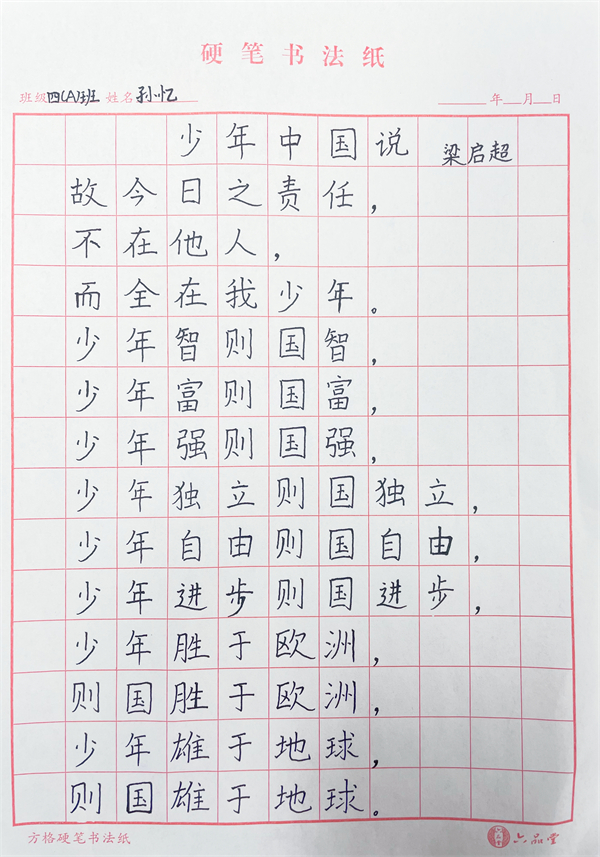 硬笔书法纸
班级四(A)班 姓名孙忆 年 月 日
少年中国说 梁启超
故今日之责任，
不在他人，
而全在我少年。
少年智则国智，
少年富则国富，
少年强则国强，
少年独立则国独立，
少年自由则国自由，
少年进步则国进步，
少年胜于欧洲，
则国胜于欧洲，
少年雄于地球，
则国雄于地球。
方格硬笔书法纸 六品堂